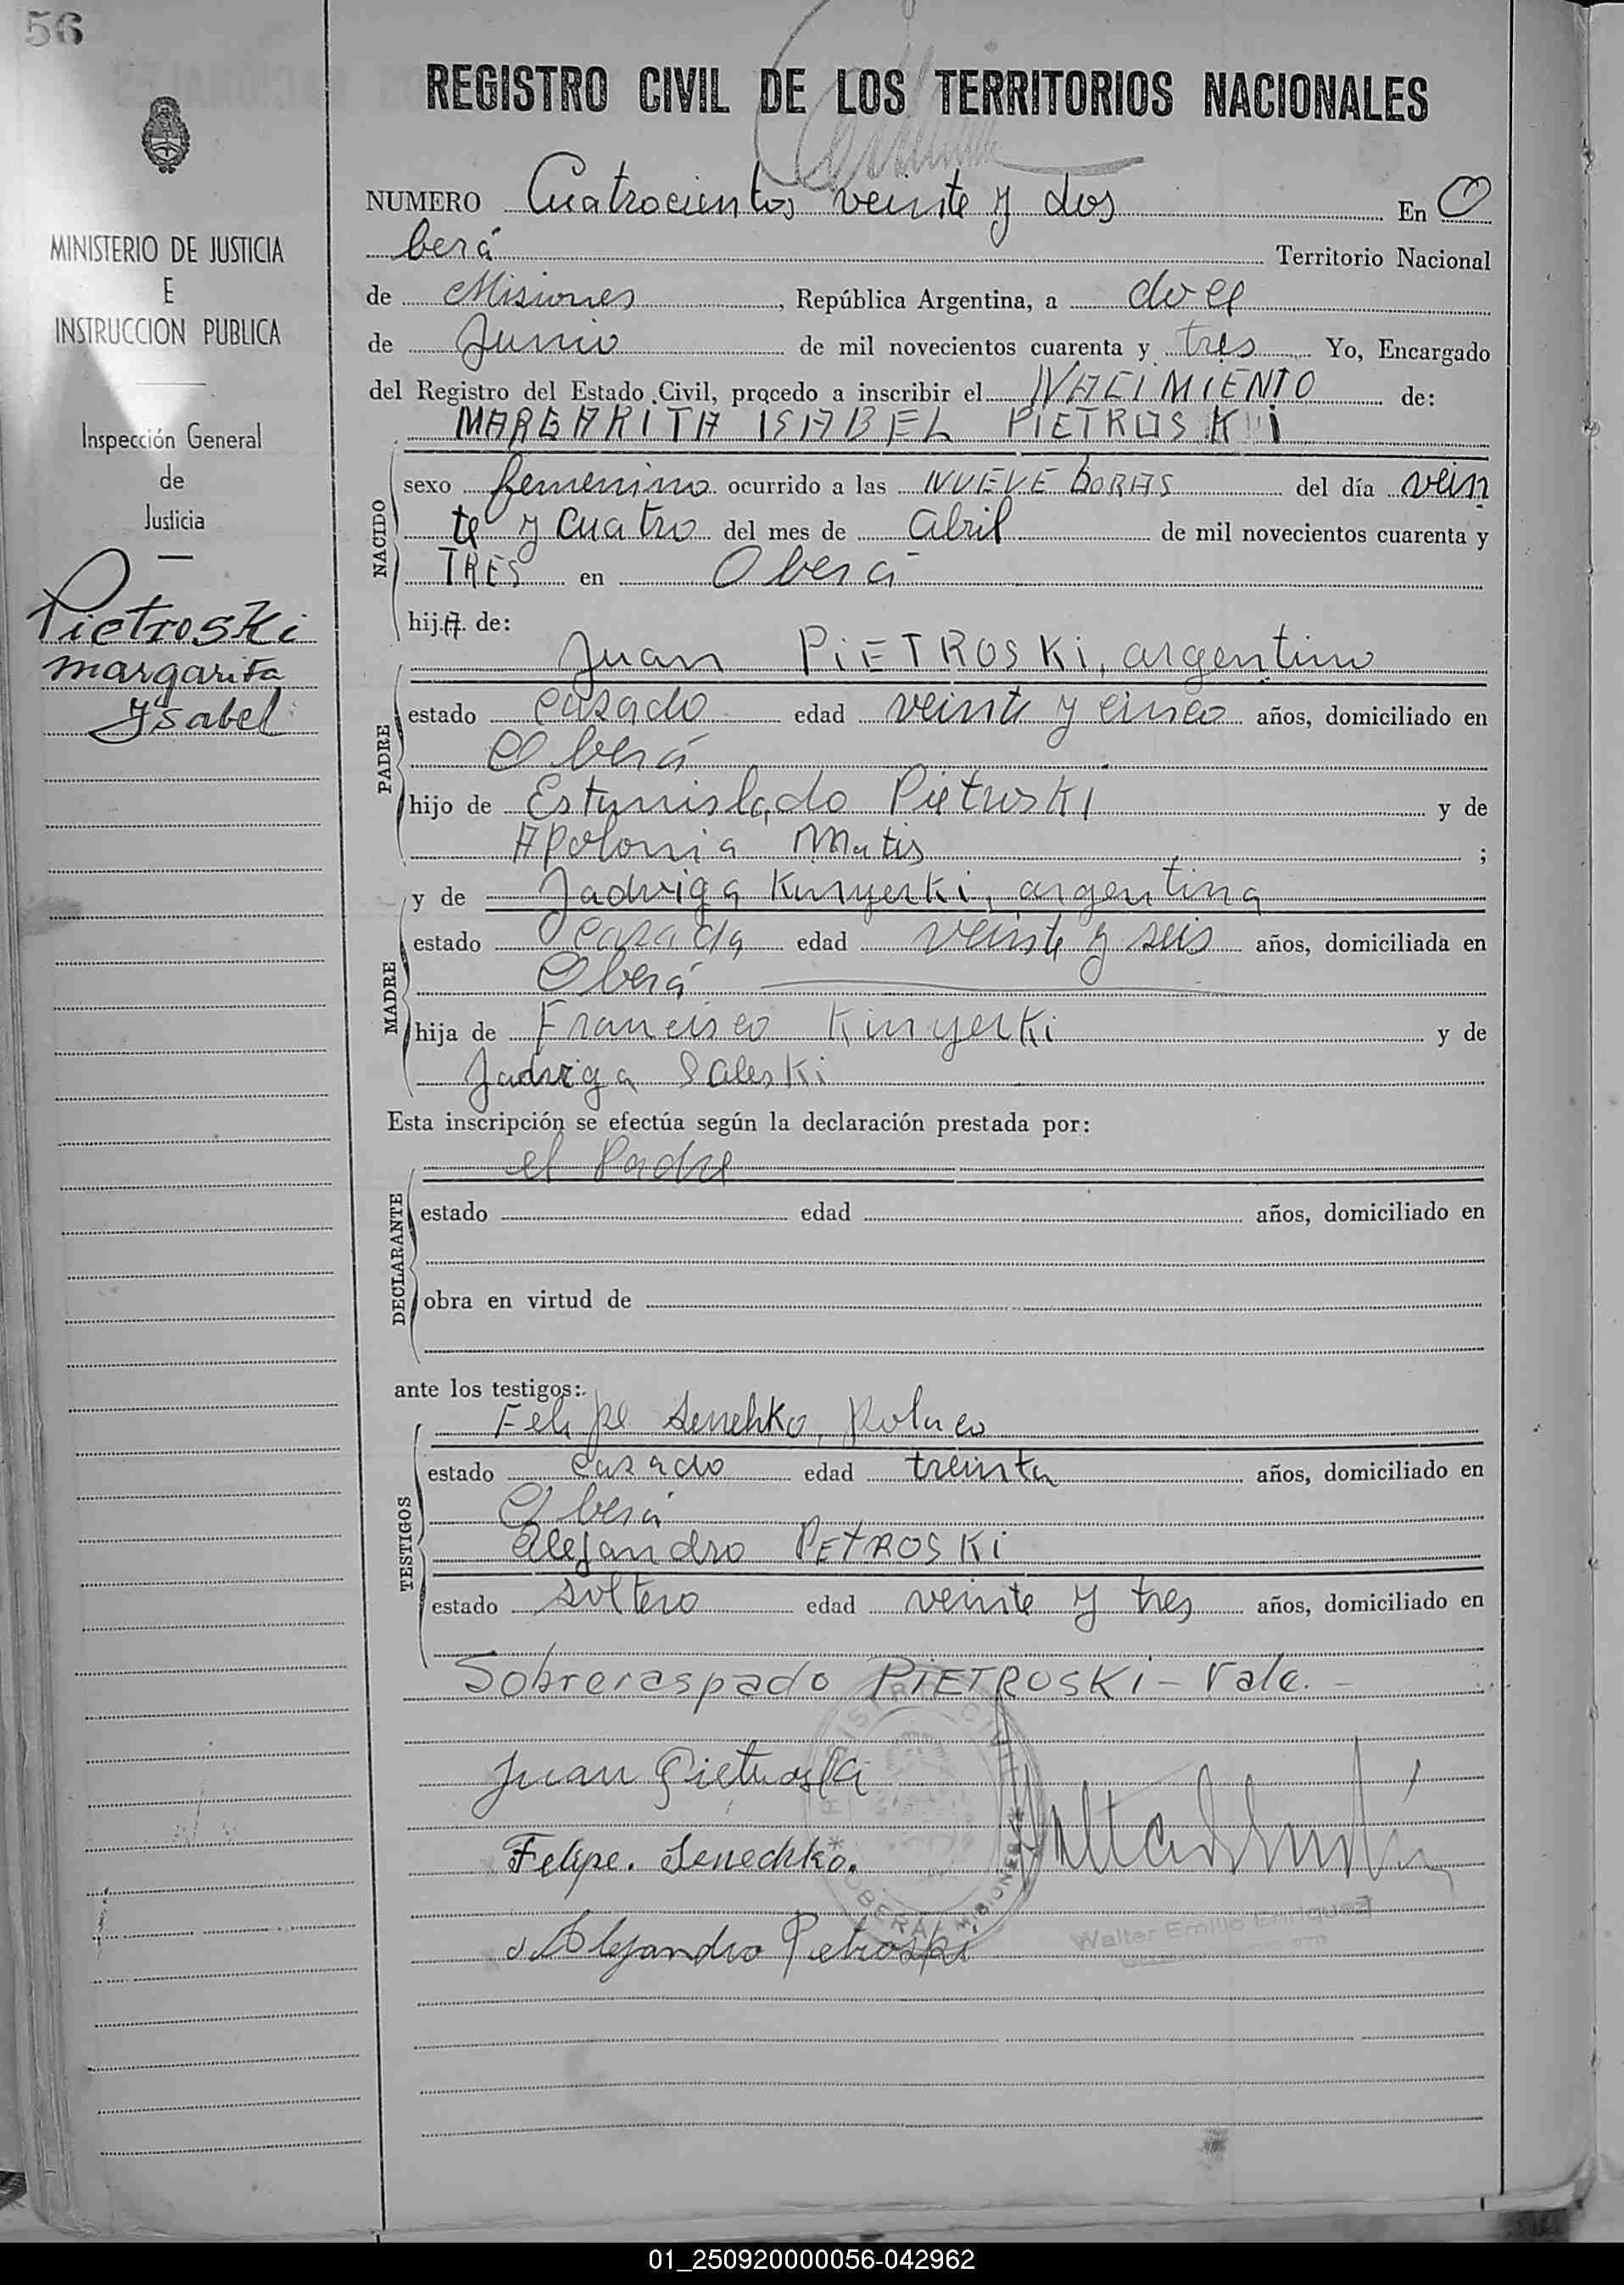 56
REGISTRO CIVIL DE LOS TERRITORIOS NACIONALES
MINISTERIO DE JUSTICIA
E
INSTRUCCION PUBLICA
Inspección General
de
Justicia
Pietroski
margarita
Ysabel
NUMERO Cuatrocientos veinte y dos En O
berá Territorio Nacional
de Misiones, República Argentina, a
de Junio de mil novecientos cuarenta y tres Yo, Encargado
del Registro del Estado Civil, procedo a inscribir el NACIMIENTO de:
MARGARITA ISABEL PIETROSKI
NACIDO
sexo femenino ocurrido a las NUEVE HORAS del día vein
te y cuatro del mes de abril de mil novecientos cuarenta y
TRES en Oberá
hijA de:
PADRE
Juan PiETROSKi, argentino
estado casado edad veinte y cinco años, domiciliado en
Oberá
hijo de Estanislado Pietroski y de
Apolonia Matis ;
MADRE
y de Jadwiga argentina
estado casada edad veinte y seis años, domiciliada en
Oberá
hija de Francisco y de
Jadwiga Saleski
Esta inscripción se efectúa según la declaración prestada por:
DECLARANTE
el Padre
estado edad años, domiciliado en
obra en virtud de
ante los testigos:
TESTIGOS
Felipe Senechko, polaco
estado casado edad treinta años, domiciliado en
Oberá
Alejandro PETROSKi
estado soltero edad veinte y tres años, domiciliado en
Sobreraspado PiETROSKi - Vale. -
Juan Pietroski
Felipe. Senechko.
Alejandro Petroski
REGISTRO CIVIL
OBERA MISIONES
Walter Emilio Enriquez
01_250920000056-042962